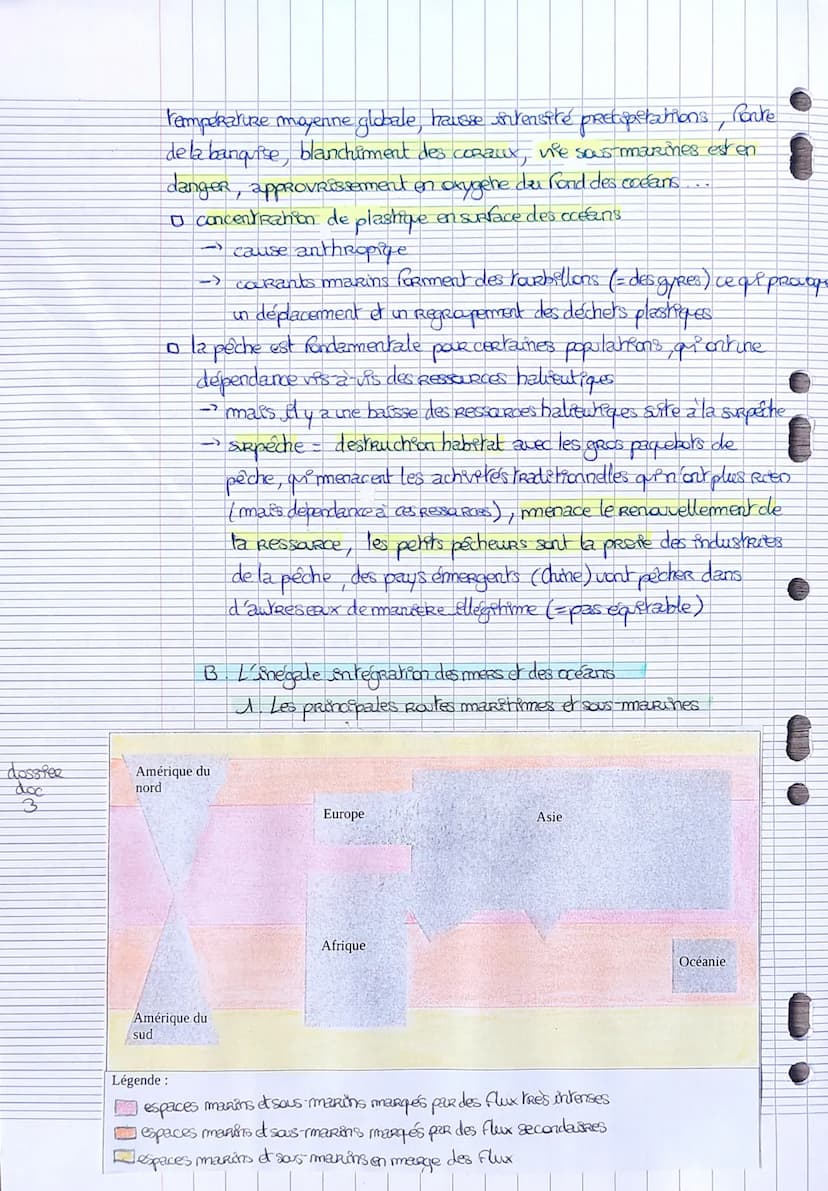 température moyenne globale, hausse intensité précipitations, fonte
de la banquise, blanchiment des coraux, vie sous-marines est en
danger, approvrissement en oxygène du fond des océans...
□ concentration de plastique en surface des océans
→ cause anthropique
→ courants marins forment des tourbillons (= des gyres) ce qui
un déplacement et un regroupement des déchets plastiques
□ la pêche est fondamentale pour certaines populations, qui ont une
dépendance vis-à-vis des ressources halieutiques
→ mais il y a une baisse des ressources halieutiques suite à la surpêche
→ surpêche = destruction habitat avec les gros paquebots de
pêche, qui menacent les activetés traditionnelles qui n'ont plus rien
(mais dépendance à ces ressources), menace le renouvellement de
la ressource, les petits pêcheurs sont la proie des industries
de la pêche, des pays émergents (Chine) vont pêcher dans
d'autres eaux de manière illégitime (= pas équitable)
B. L'inégale intégration des mers et des océans
1. Les principales routes maritimes et sous-marines
dossier
doc
3
Amérique du
nord
Europe
Asie
Afrique
Océanie
Amérique du
sud
Légende :
espaces marins et sous-marins marqués par des flux très intenses
espaces marins et sous-marins marqués par des flux secondaires
espaces marins et sous-marins en marge des flux